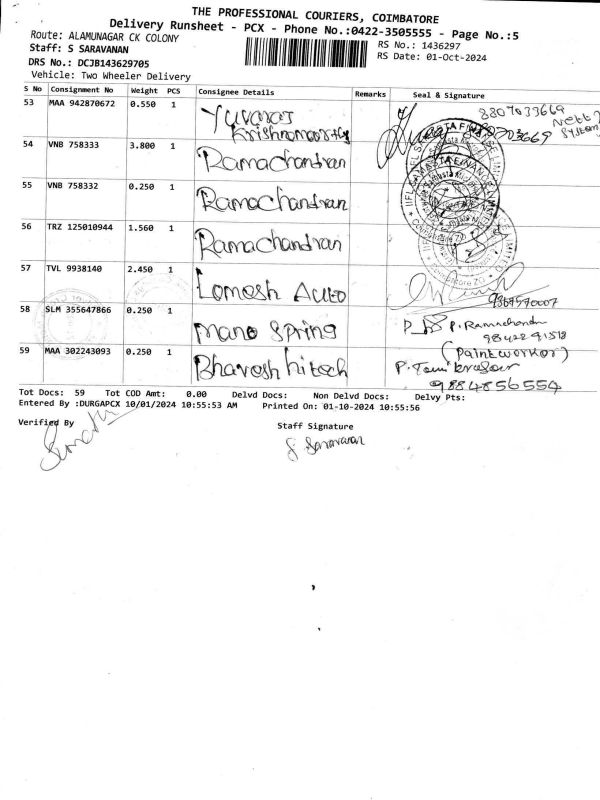 THE PROFESSIONAL COURIERS, COIMBATORE
Delivery Runsheet - PCX - Phone No.:0422-3505555 - Page No.:5
Route: ALAMUNAGAR CK COLONY
RS No.: 1436297
Staff: S SARAVANAN
RS Date: 01-Oct-2024
DRS No.: DCJB143629705
Vehicle: Two Wheeler Delivery
S No Consignment No Weight PCS Consignee Details Remarks Seal & Signature
53 MAA 942870672 0.550 1 Yuvaraj Krishnamoorthy 8807033669
54 VNB 758333 3.800 1 Ramachandran
55 VNB 758332 0.250 1 Ramachandran
56 TRZ 125010944 1.560 1 Ramachandran
57 TVL 9938140 2.450 1 Lomosh Auto
58 SLM 355647866 0.250 1 Mano Spring P. Ramachandu
59 MAA 302243093 0.250 1 Bhavesh hitech
9884856554
Tot Docs: 59 Tot COD Amt: 0.00 Delvd Docs: Non Delvd Docs: Delvy Pts:
Entered By :DURGAPCX 10/01/2024 10:55:53 AM Printed On: 01-10-2024 10:55:56
Verified By
Staff Signature
S Saravanan